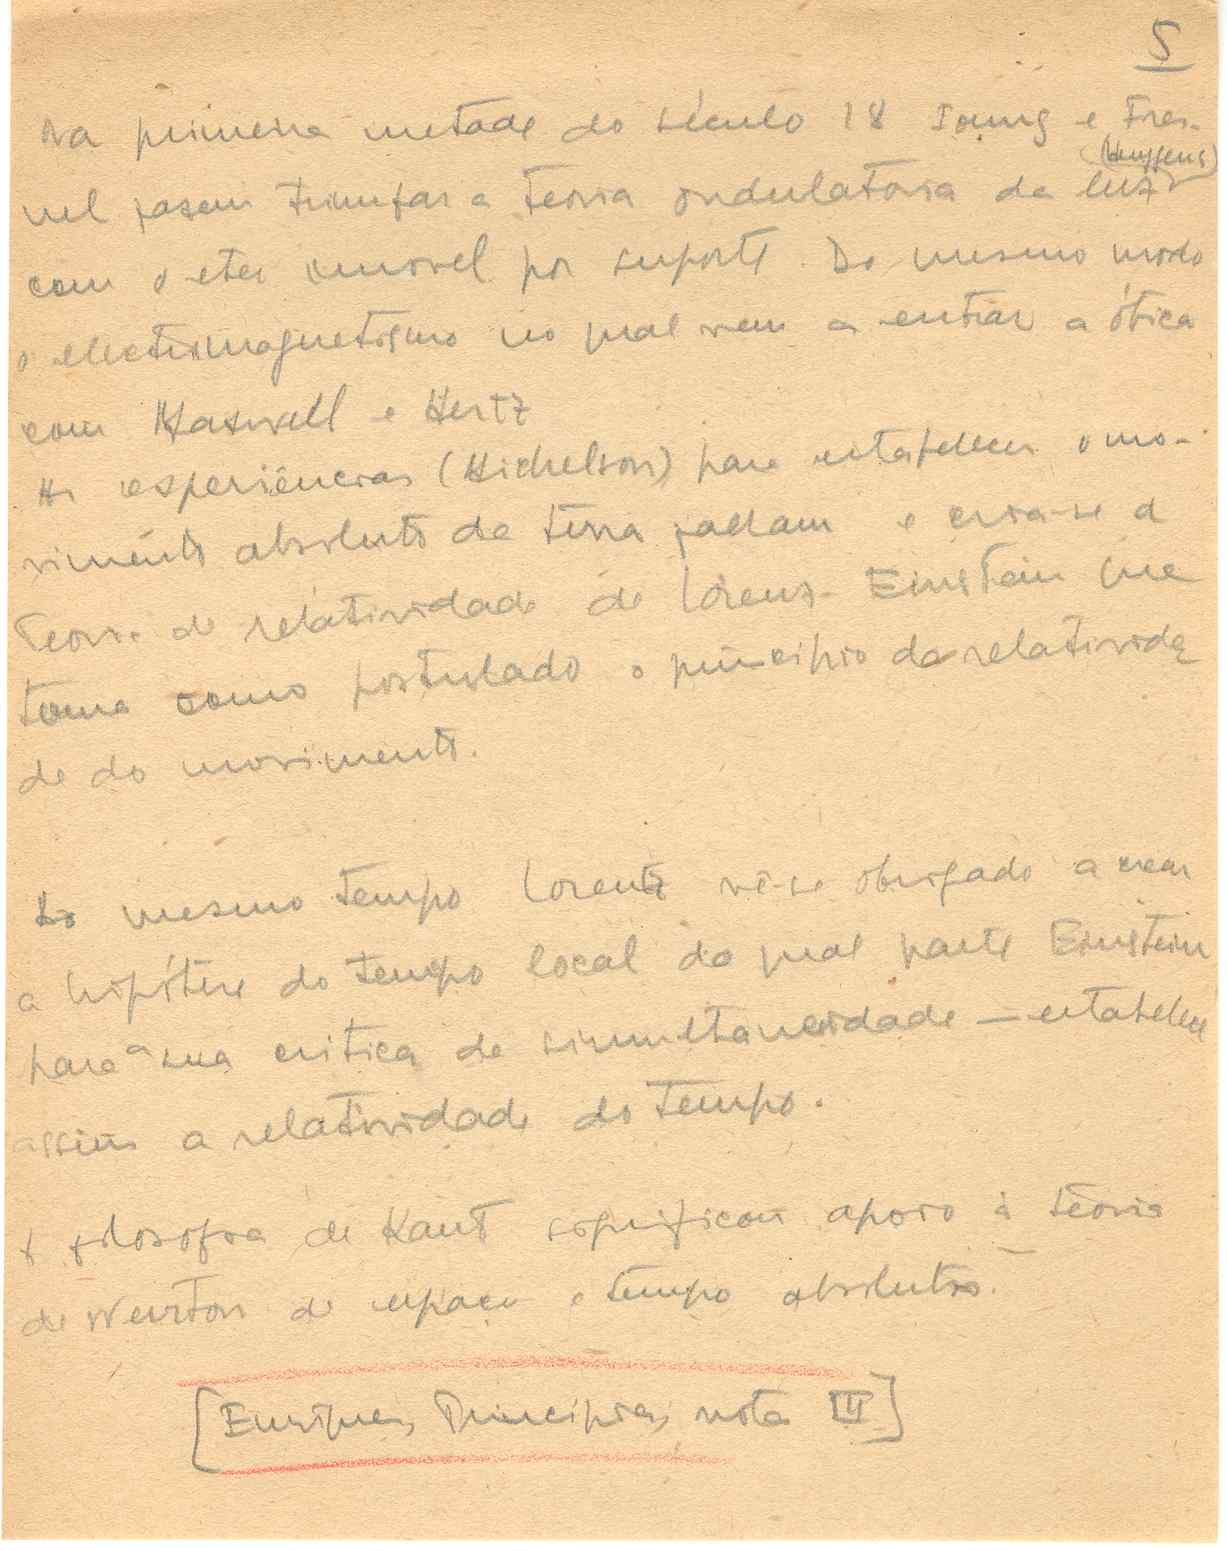 5
Na primeira metade do século 18 Young e Fres-
(Huygens)
nel fazem triunfar a teoria ondulatoria da luz
com o eter imovel por suporte. Do mesmo modo
o electromagnetismo no qual vem a entrar a ótica
com Maxwell e Hertz
As experiências (Michelson) para estabelecer o mo-
vimento absoluto da terra falham e cria-se a
teoria da relatividade de Lorenz-Einstein que
toma como postulado o princípio da relativida
de do movimento.
Ao mesmo tempo Lorentz vê-se obrigado a crear
a hipótese do tempo local do qual parte Einstein
para a sua critica de simultaneidade — estabelece
assim a relatividade do tempo.
A filosofia de Kant significou apoio à teoria
de Newton de espaço e tempo absolutos.
[Enriques, Principios, nota III]